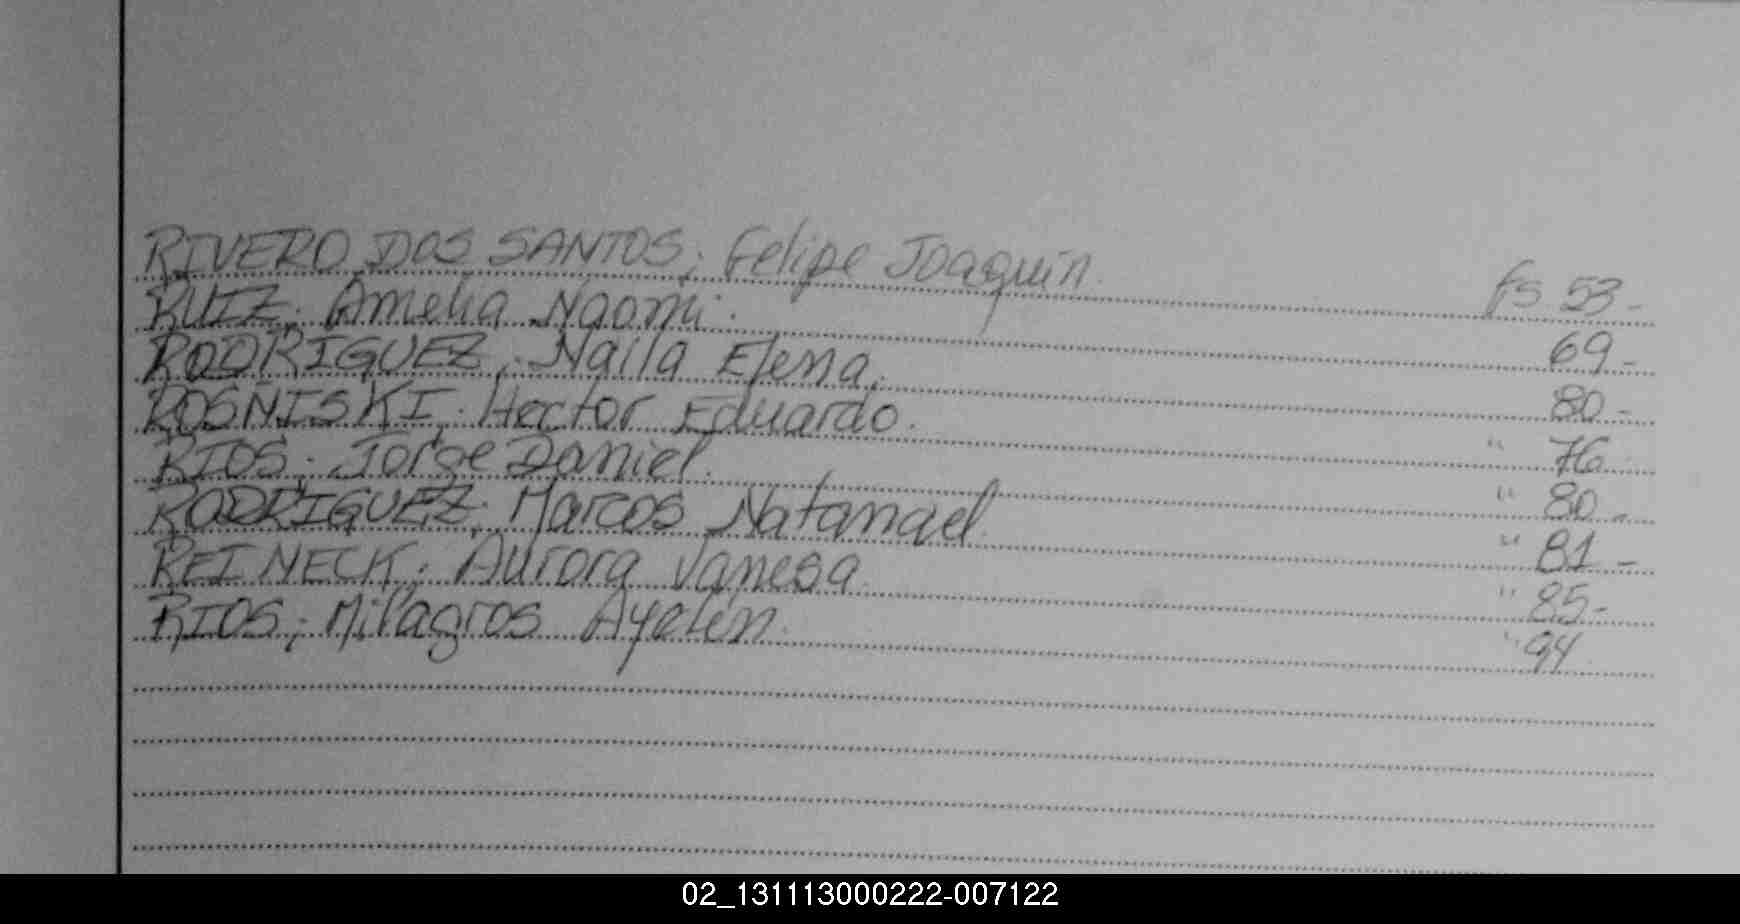 RIVERO DOS SANTOS; Felipe Joaquín. fs 53-
RUIZ; Amelia Naomi. 69-
RODRIGUEZ; Naila Elena. 80-
ROSÑISKI; Hector Eduardo. " 76
RIOS; Jorge Daniel. " 80-
RODRIGUEZ; Marcos Natanael. " 81-
REINECK; Aurora Vanesa. " 85-
RIOS; Milagros Ayelén. " 94
02_131113000222-007122